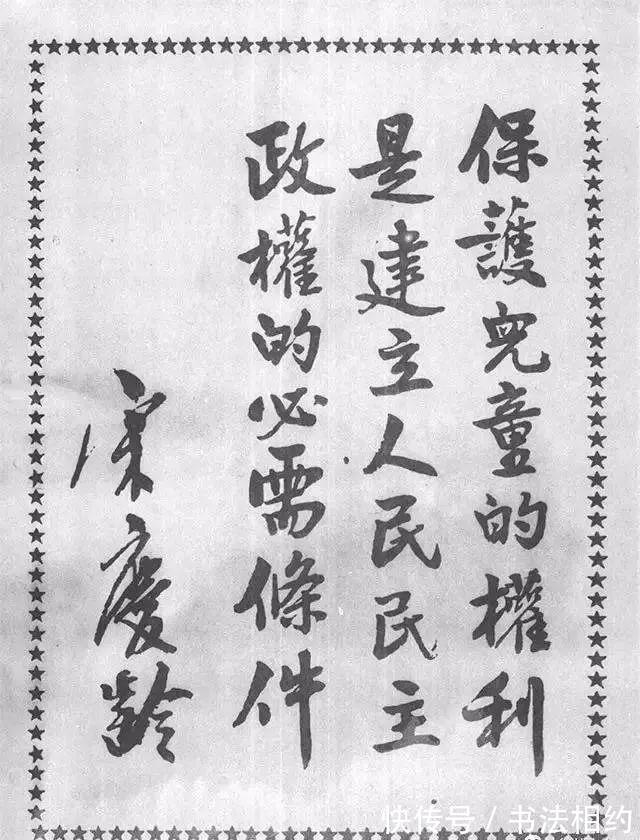 保護兒童的權利
是建立人民民主
政權的必需條件
宋慶齡
快传号/书法相约